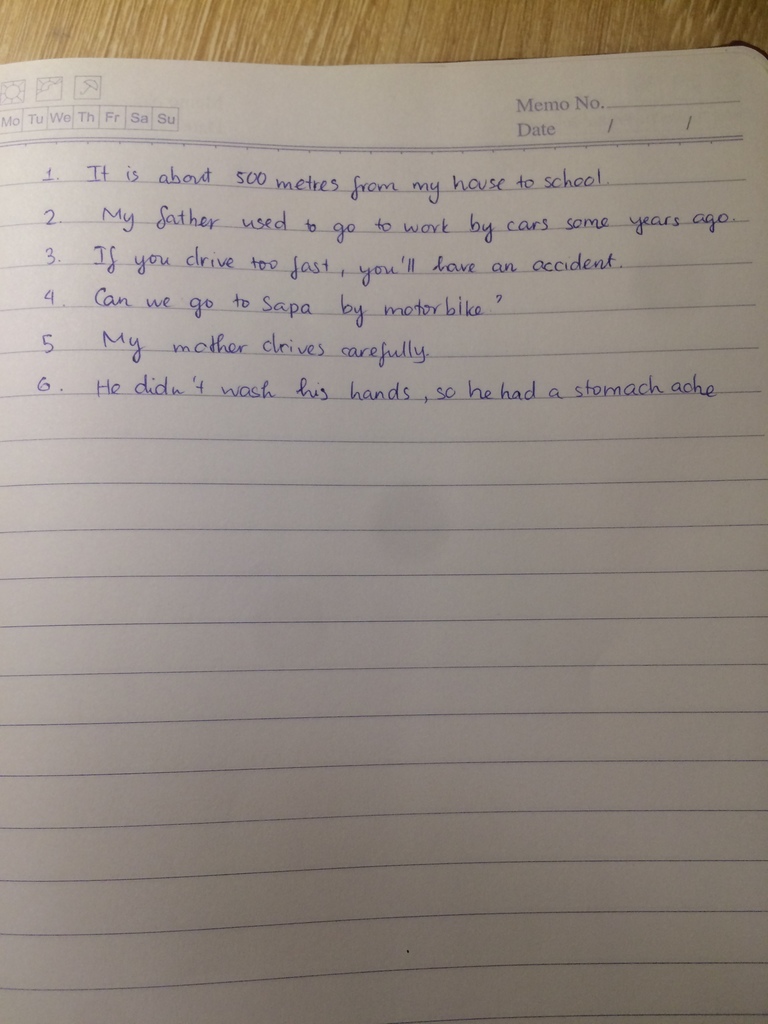 Mo Tu We Th Fr Sa Su
Memo No.
Date / /
1. It is about 500 metres from my house to school.
2. My father used to go to work by cars some years ago.
3. If you drive too fast, you'll have an accident.
4. Can we go to Sapa by motorbike?
5 My mother drives carefully.
6. He didn't wash his hands, so he had a stomach ache